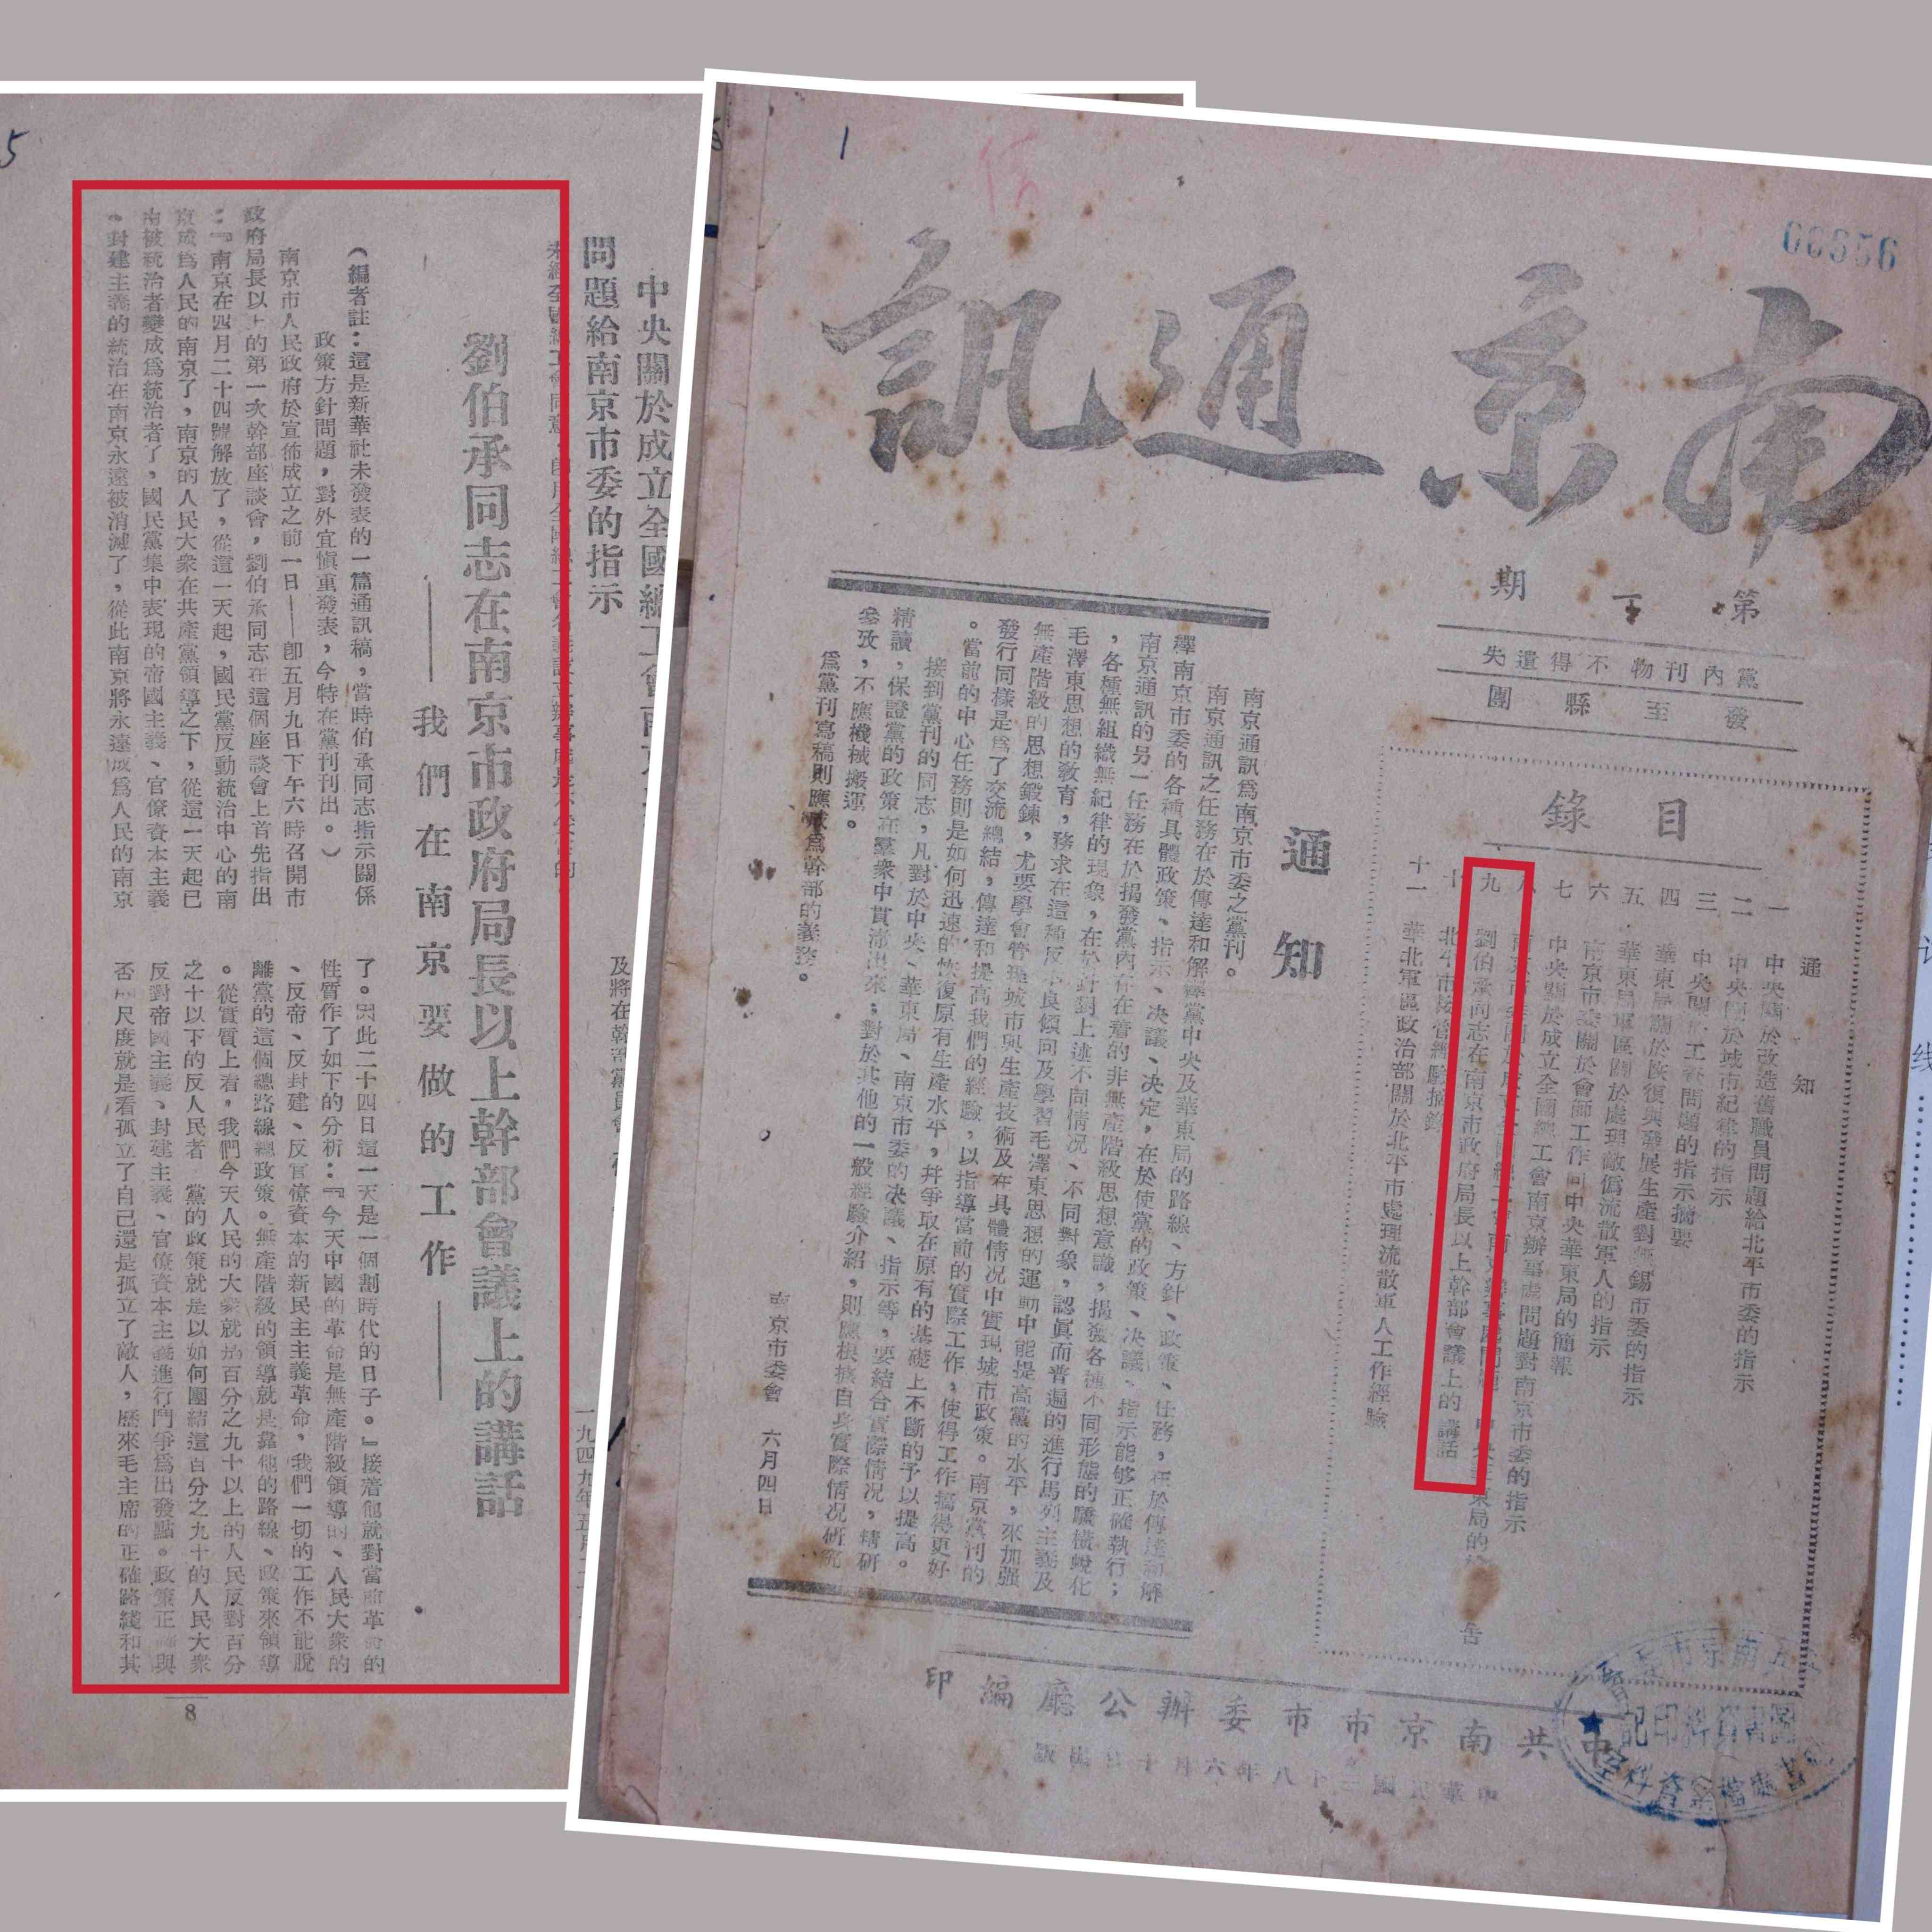 5
中央關於成立全國總工會南京
問題給南京市委的指示
劉伯承同志在南京市政府局長以上幹部會議上的講話
——我們在南京要做的工作——
(編者註：這是新華社未發表的一篇通訊稿，當時伯承同志指示關係
政策方針問題，對外宜愼重發表，今特在黨刊刊出。)
南京市人民政府於宣佈成立之前一日——卽五月九日下午六時召開市
政府局長以上的第一次幹部座談會，劉伯承同志在這個座談會上首先指出
：『南京在四月二十四號解放了，從這一天起，國民黨反動統治中心的南
京成爲人民的南京了，南京的人民大衆在共產黨領導之下，從這一天起已
由被統治者變成爲統治者了，國民黨集中表現的帝國主義、官僚資本主義
、封建主義的統治在南京永遠被消滅了，從此南京將永遠成爲人民的南京
了。因此二十四日這一天是一個劃時代的日子。』接着他就對當前革命的
性質作了如下的分析：『今天中國的革命是無產階級領導的、人民大衆的
、反帝、反封建、反官僚資本的新民主主義革命，我們一切的工作不能脫
離黨的這個總路線總政策。無產階級的領導就是靠他的路線、政策來領導
。從實質上看，我們今天人民的大衆就是百分之九十以上的人民反對百分
之十以下的反人民者，黨的政策就是以如何團結這百分之九十的人民大衆
反對帝國主義、封建主義、官僚資本主義進行鬥爭爲出發點。政策正確與
否的尺度就是看孤立了自己還是孤立了敵人，歷來毛主席的正確路綫和其
8
1
00656
南京通訊
第一期
黨內刊物不得遺失
發至縣團
目錄
通知
一 中央關於改造舊職員問題給北平市委的指示
二 中央關於城市紀律的指示
三 中央關於工資問題的指示摘要
四 華東局關於恢復與發展生產對無錫市委的指示
五 華東局軍區關於處理敵僞流散軍人的指示
六 南京市委關於會師工作向中央華東局的簡報
七 中央關於成立全國總工會南京辦事處問題對南京市委的指示
八 南京市委關於成立全國總工會南京辦事處問題
九 劉伯承同志在南京市政府局長以上幹部會議上的講話
十 北平市接管經驗摘錄
十一 華北軍區政治部關於北平市處理流散軍人工作經驗
通知
南京通訊爲南京市委之黨刊。
南京通訊之任務在於傳達和解釋黨中央及華東局的路線、方針、政策、任務，在於傳達和解
釋南京市委的各種具體政策、指示、決議、決定，在於使黨的政策、決議、指示能够正確執行；
南京通訊的另一任務在於揭發黨內存在着的非無產階級思想意識，揭發各種不同形態的驕橫蛻化
，各種無組織無紀律的現象，在於針對上述不同情况、不同對象，認眞而普遍的進行馬列主義及
毛澤東思想的敎育，務求在這種反不良傾向及學習毛澤東思想的運動中能提高黨的水平，來加强
無產階級的思想鍛鍊，尤要學會管理城市與生產技術及在具體情况中實現城市政策。南京黨刊的
發行同樣是爲了交流總結，傳達和提高我們的經驗，以指導當前的實際工作，使得工作搞得更好
。當前的中心任務則是如何迅速的恢復原有生產水平，幷爭取在原有的基礎上不斷的予以提高。
接到黨刊的同志，凡對於中央、華東局、南京市委的決議、指示等，要結合實際情况，精研
精讀，保證黨的政策在羣衆中貫澈出來；對於其他的一般經驗介紹，則應根據自身實際情况研究
參攷，不應機械搬運。
爲黨刊寫稿則應成爲幹部的義務。
南京市委會 六月四日
中共南京市市委辦公廳編印
中華民國三十八年六月十日出版